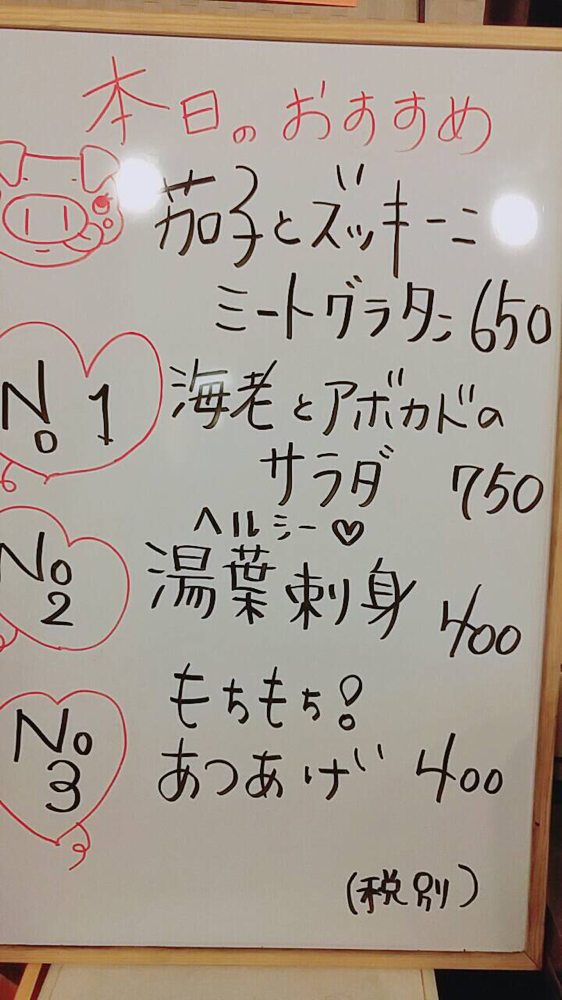 本日のおすすめ
茄子とズッキーニ
ミートグラタン 650
No 1
海老とアボカドの
サラダ 750
No 2
ヘルシー♡
湯葉刺身 400
No 3
もちもち!
あつあげ 400
(税別)